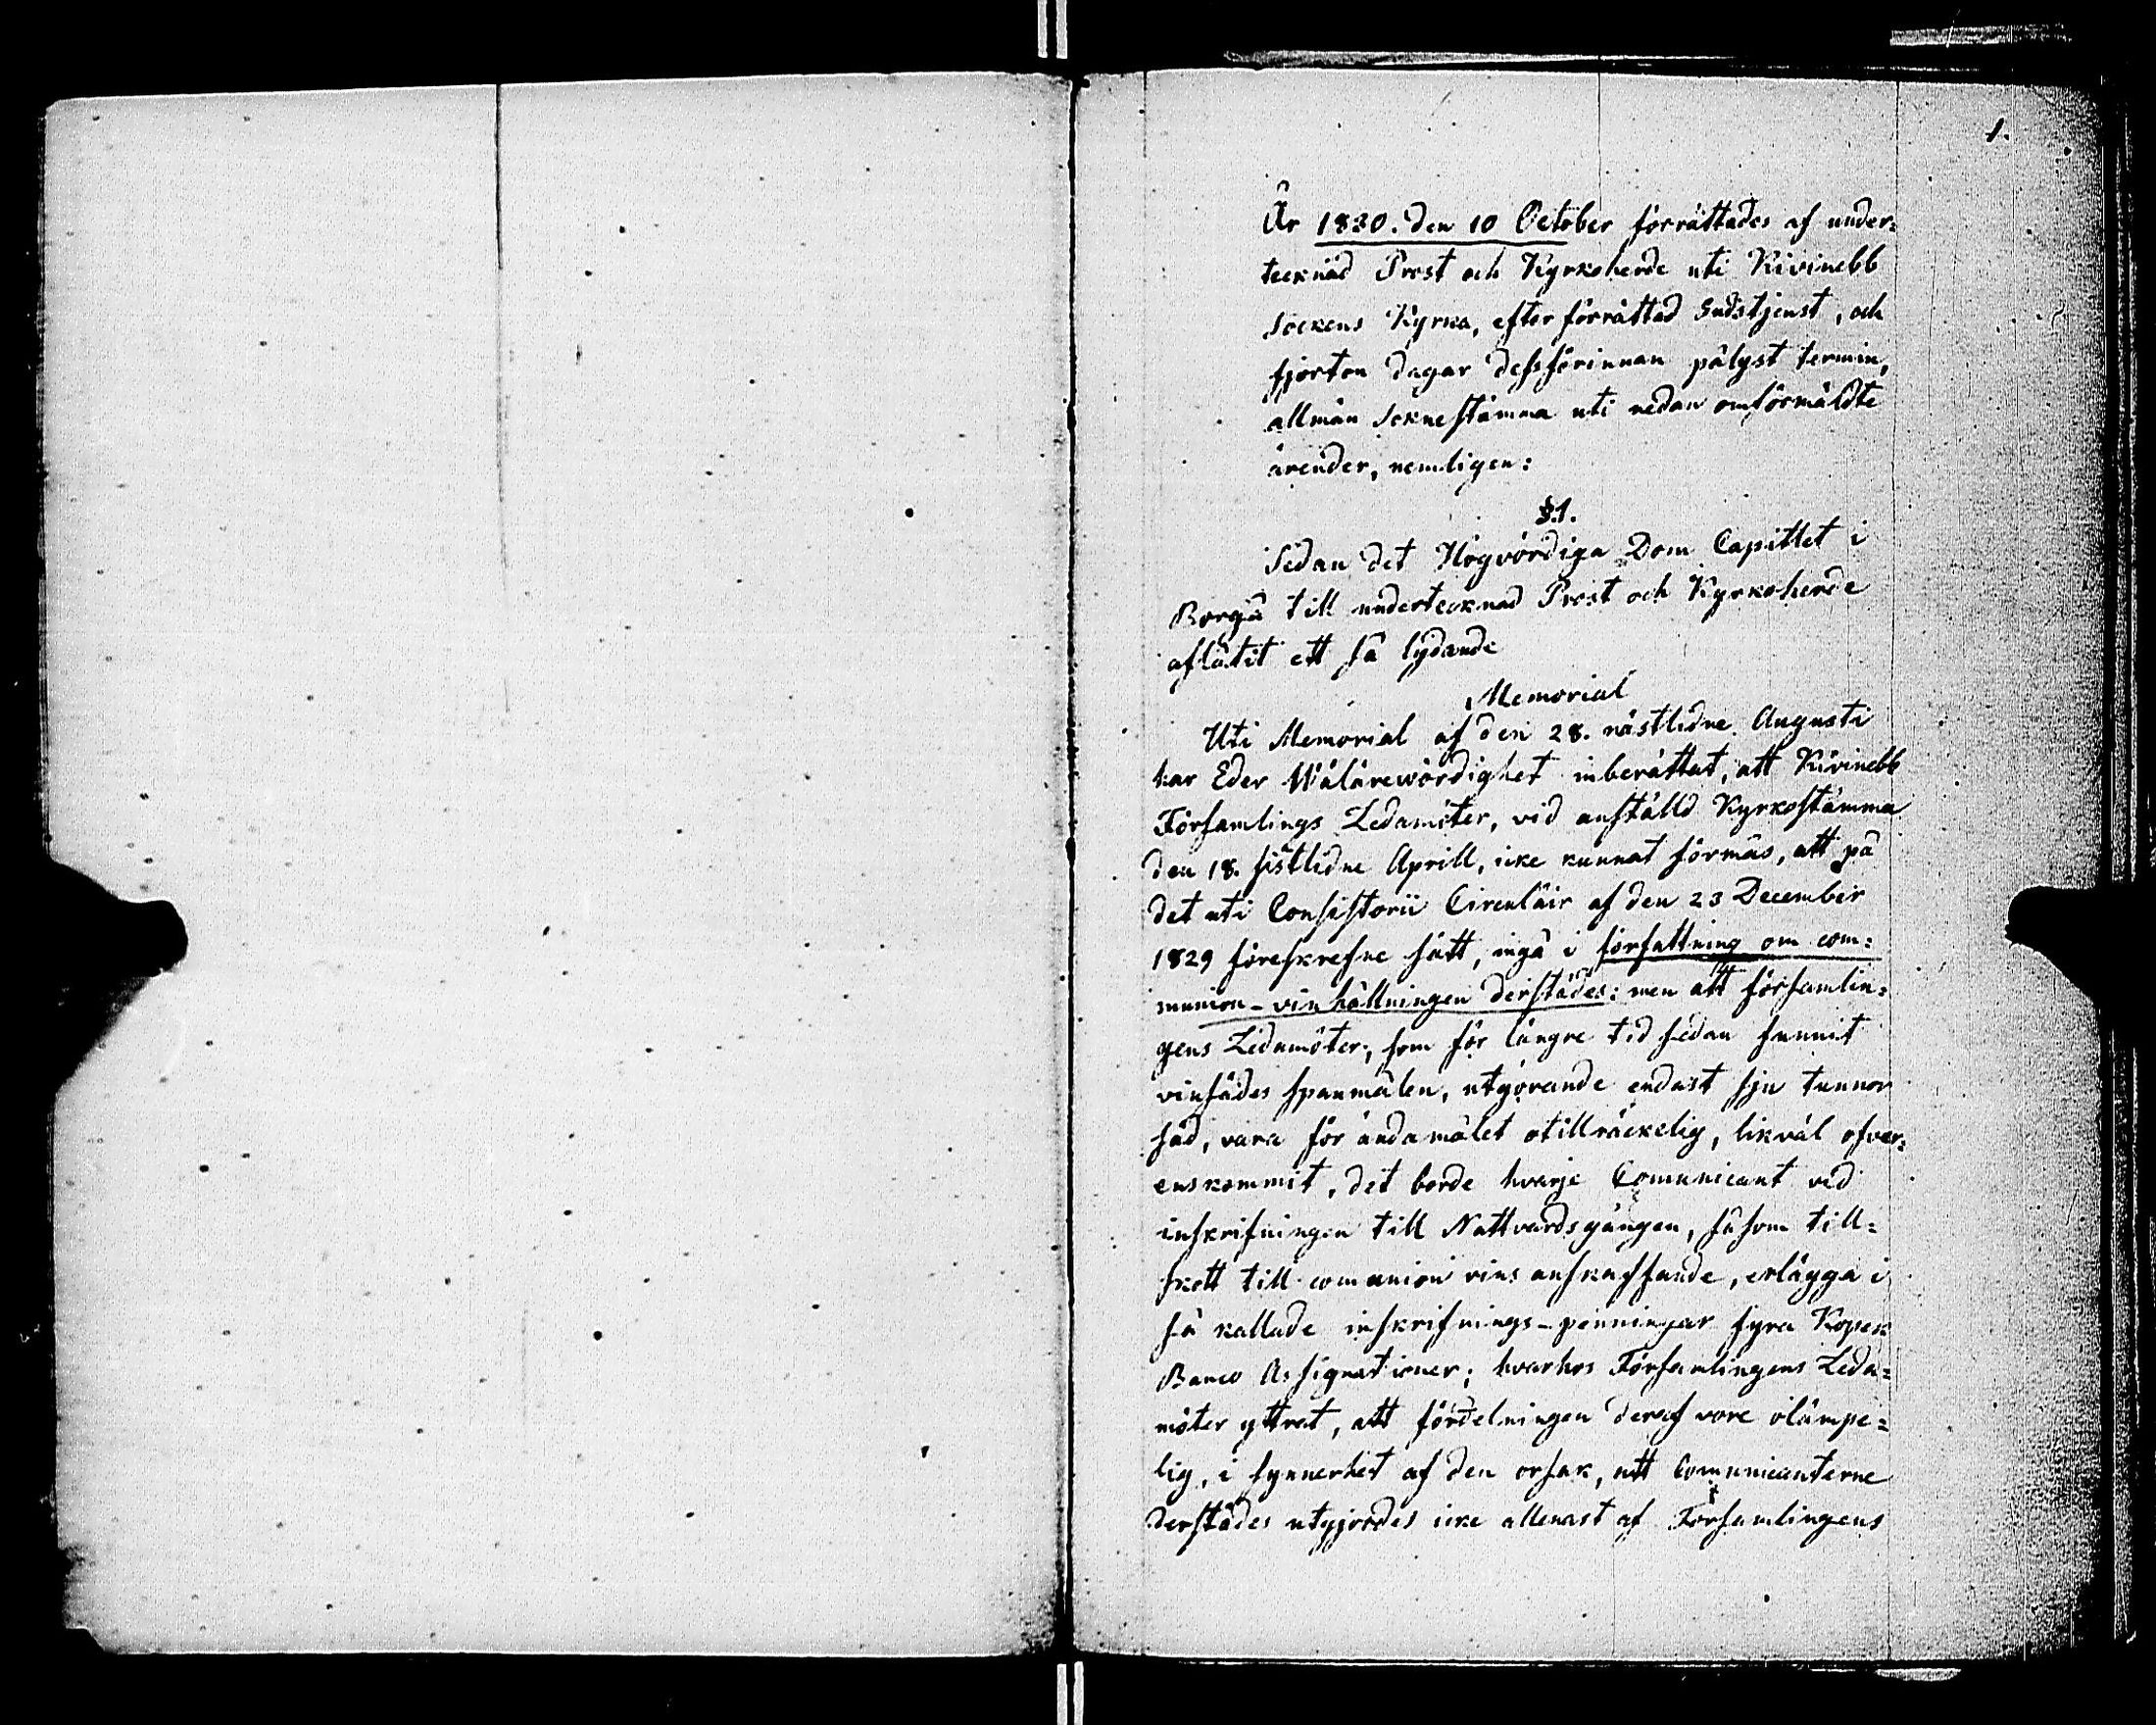 1.
År 1830. den 10 October förrättades af under=
tecknad Prost och Kyrkoherde uti Kivinebb
Sockens Kyrka, efter förrättad Gudstjenst, och
fjorton dagar dessförinnan pålyst termin,
allmän Soknestämma uti nedan omförmäldte
ärender, nemligen:
§.1.
Sedan det Högvördiga Dom Capitlet i
Borgå till undertecknad Prost och Kyrkoherde
aflåtit ett så lydande
Memorial
Uti Memorial af den 28. nästlidne Augusti
har Eder Wälärewördighet inberättat, att Kivinebb
Församlings Ledamöter, vid anställd Kyrkostämma
den 18. sistlidne Aprill, icke kunnat förmås, att på
det uti Consistorii Circulair af den 23 December
1829 föreskrefne sätt, ingå i författning om com=
munion-vinhållningen derstädes: men att församlin=
gens Ledamöter, som för längre tid sedan funnit
vinsädes spanmålen, utgörande endast sju tunnor
säd, vara för ändamålet otillräckelig, likväl öfver=
enskommit, det borde hvarje Comunicant vid
inskrifningen till Nattvardsgången, såsom till=
skott till comunion vins anskaffande, erlägga i
så kallade inskrifnings-penningar fyra Kopek
Banco Assignationer; hvarhos Församlingens Leda=
möter yttrat, att fördelningen deraf vore olämpe=
lig, i synnerhet af den orsak, att Comunicanterne
derstädes utgjordes icke allenast af Församlingens